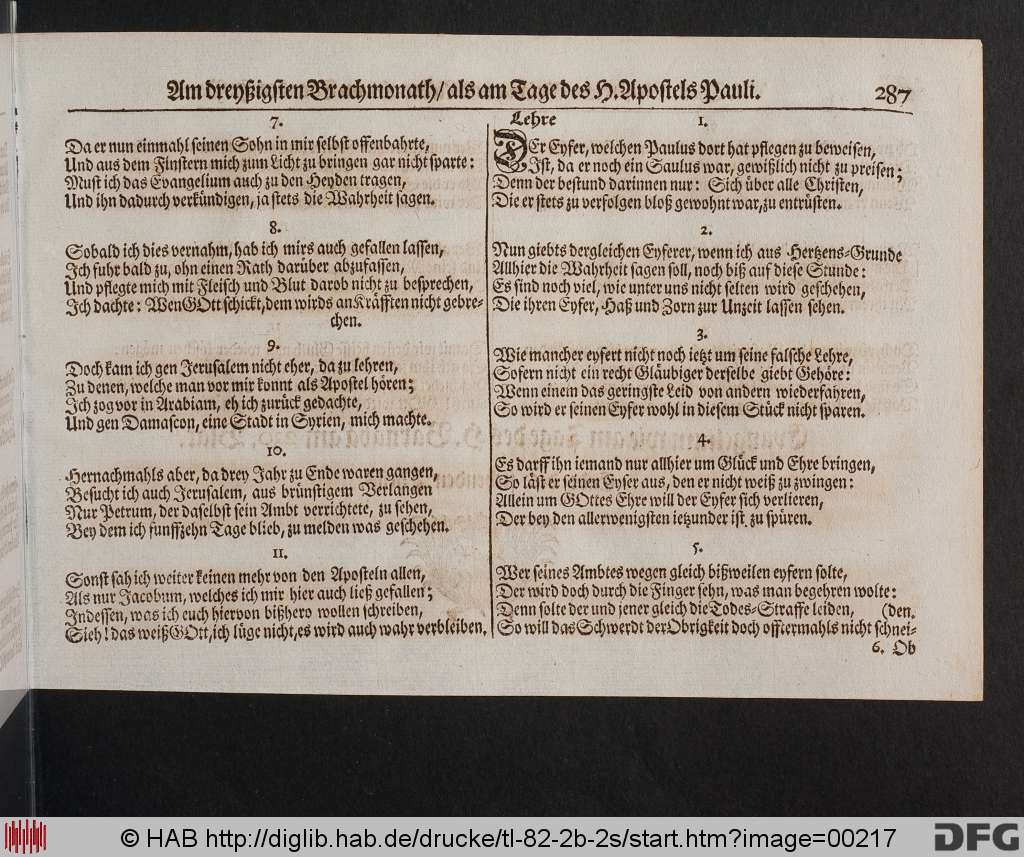 Am dreyßigsten Brachmonath/ als am Tage des H. Apostels Pauli. 287
7.
Da er nun einmahl seinen Sohn in mir selbst offenbahrte,
Und aus dem Finstern mich zum Licht zu bringen gar nicht sparte:
Must ich das Evangelium auch zu den Heyden tragen,
Und ihn dadurch verkündigen, ja stets die Wahrheit sagen.
8.
Sobald ich dies vernahm, hab ich mirs auch gefallen lassen,
Ich fuhr bald zu, ohn einen Rath darüber abzufassen,
Und pflegte mich mit Fleisch und Blut darob nicht zu besprechen,
Ich dachte: Wen GOtt schickt, dem wirds an Kräfften nicht gebre-
chen.
9.
Doch kam ich gen Jerusalem nicht eher, da zu lehren,
Zu denen, welche man vor mir konnt als Apostel hören;
Ich zog vor in Arabiam, eh ich zurück gedachte,
Und gen Damascon, eine Stadt in Syrien, mich machte.
10.
Hernachmahls aber, da drey Jahr zu Ende waren gangen,
Besucht ich auch Jerusalem, aus brünstigem Verlangen
Nur Petrum, der daselbst sein Ambt verrichtete, zu sehen,
Bey dem ich funffzehn Tage blieb, zu melden was geschehen.
11.
Sonst sah ich weiter keinen mehr von den Aposteln allen,
Als nur Jacobum, welches ich mir hier auch ließ gefallen;
Indessen, was ich euch hiervon bißhero wollen schreiben,
Sieh! das weiß GOtt, ich lüge nicht, es wird auch wahr verbleiben.
Lehre 1.
DEr Eyfer, welchen Paulus dort hat pflegen zu beweisen,
Ist, da er noch ein Saulus war, gewißlich nicht zu preisen;
Denn der bestund darinnen nur: Sich über alle Christen,
Die er stets zu verfolgen bloß gewohnt war, zu entrüsten.
2.
Nun giebts dergleichen Eyferer, wenn ich aus Hertzens-Grunde
Allhier die Wahrheit sagen soll, noch biß auf diese Stunde:
Es sind noch viel, wie unter uns nicht selten wird geschehen,
Die ihren Eyfer, Haß und Zorn zur Unzeit lassen sehen.
3.
Wie mancher eyfert nicht noch ietzt um seine falsche Lehre,
Sofern nicht ein recht Gläubiger derselbe giebt Gehöre:
Wenn einem das geringste Leid von andern wiederfahren,
So wird er seinen Eyfer wohl in diesem Stück nicht sparen.
4.
Es darff ihn iemand nur allhier um Glück und Ehre bringen,
So läst er seinen Eyfer aus, den er nicht weiß zu zwingen:
Allein um GOttes Ehre will der Eyfer sich verlieren,
Der bey den allerwenigsten ietzunder ist zu spüren.
5.
Wer seines Ambtes wegen gleich bißweilen eyfern solte,
Der wird doch durch die Finger sehn, was man begehren wolte:
Denn solte der und jener gleich die Todes-Straffe leiden, (den.
So will das Schwerdt der Obrigkeit doch offtermahls nicht schnei-
6. Ob
© HAB http://diglib.hab.de/drucke/tl-82-2b-2s/start.htm?image=00217
DFG